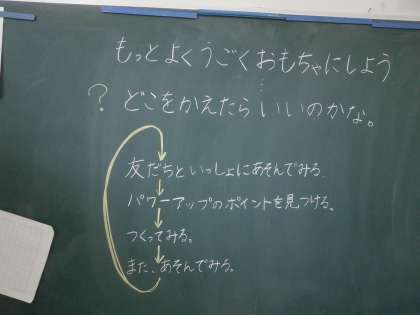 もっとよくうごくおもちゃにしよう
? どこをかえたらいいのかな。
友だちといっしょにあそんでみる。
パワーアップのポイントを見つける。
つくってみる。
また、あそんでみる。